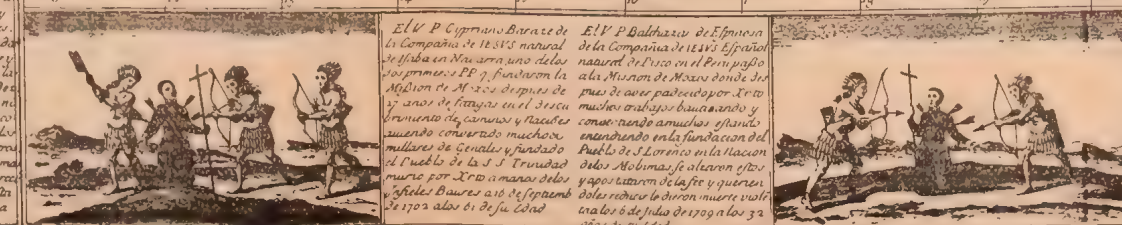 El V P Cypriano Baraze de
la Compañia de IESVS natural
de Isaba en Navarra, uno de los
dos primeros PP q fundaron la
Mission de Moxos despues de
27 años de fatigas en el descu
brimiento de caminos y Naciões
aviendo convertido muchos
millares de Gentiles y fundado
el Pueblo de la S S Trinidad
murio por Xrto a manos de los
Infieles Baures a 16 de septiemb
de 1702 a los 61 de su Edad
El V P Balthazar de Espinosa
de la Compañia de IESVS Español
natural de Pisco en el Peru passo
a la Mission de Moxos donde des
pues de aver padecido por Xrto
muchos trabajos bautizando y
convirtiendo a muchos estando
entendiendo en la fundacion del
Pueblo de S Lorenço en la Nacion
de los Mobimas se alteraron estos
y apostataron de la fee y querien
doles reducir le dieron muerte viole
ta a los 6 de Julio de 1709 a los 32